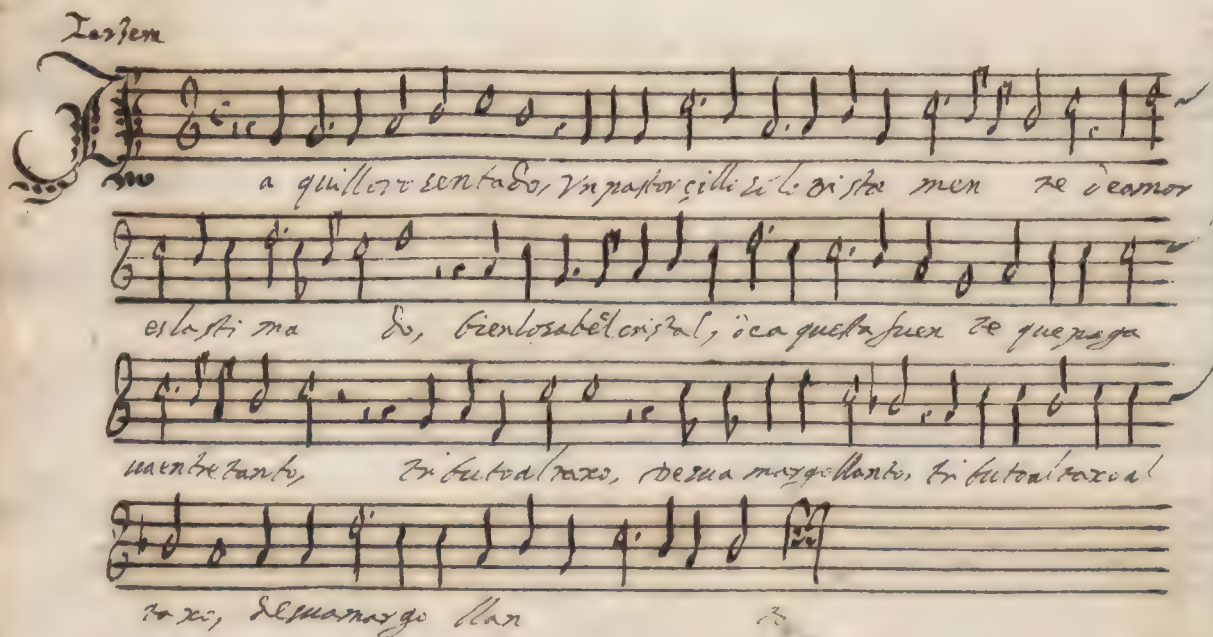 J
a quillozo sentado, vn pastorçillo si lo vista men te de amor
es lasti ma do, bien lo sabe el cristal, de a questa fuen te que paga
ua entre tanto, tri buto al taxo, de su a margo llanto, tri buto al taxo al
ta xo, de su amargo llan to